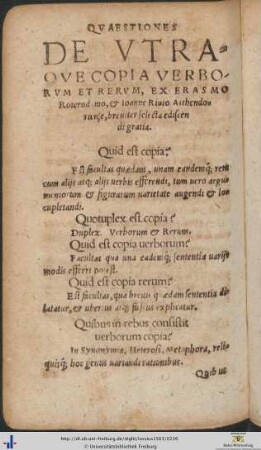 QVAESTIONES
DE VTRA-
QVE COPIA VERBO-
RVM ET RERVM, EX ERASMO
Roterod mo, & Ioanne Riuio Atthendo
breuiter selecta ediscen
di gratia.
Quid est copia?
Est facultas quædam, unam eandemq; rem
cum alijs atq; alijs uerbis efferendi, tum uero argu
mentorum & figurarum uarietate augendi & lo
cupletandi.
Quotuplex est copia?
Duplex. Verborum & Rerum.
Quid est copia uerborum?
Facultas qua una eademq; sententia uarijs
modis efferri potest.
Quid est copia rerum?
Est facultas, qua breuis quædam sententia di
latatur, & uberius atq; fusius explicatur.
Quibus in rebus consistit
uerborum copia?
In Synonymia, Heterosi, Metaphora, reli-
quisq; hoc genus uariandi rationibus.
Quibus
Universitätsbibliothek Freiburg